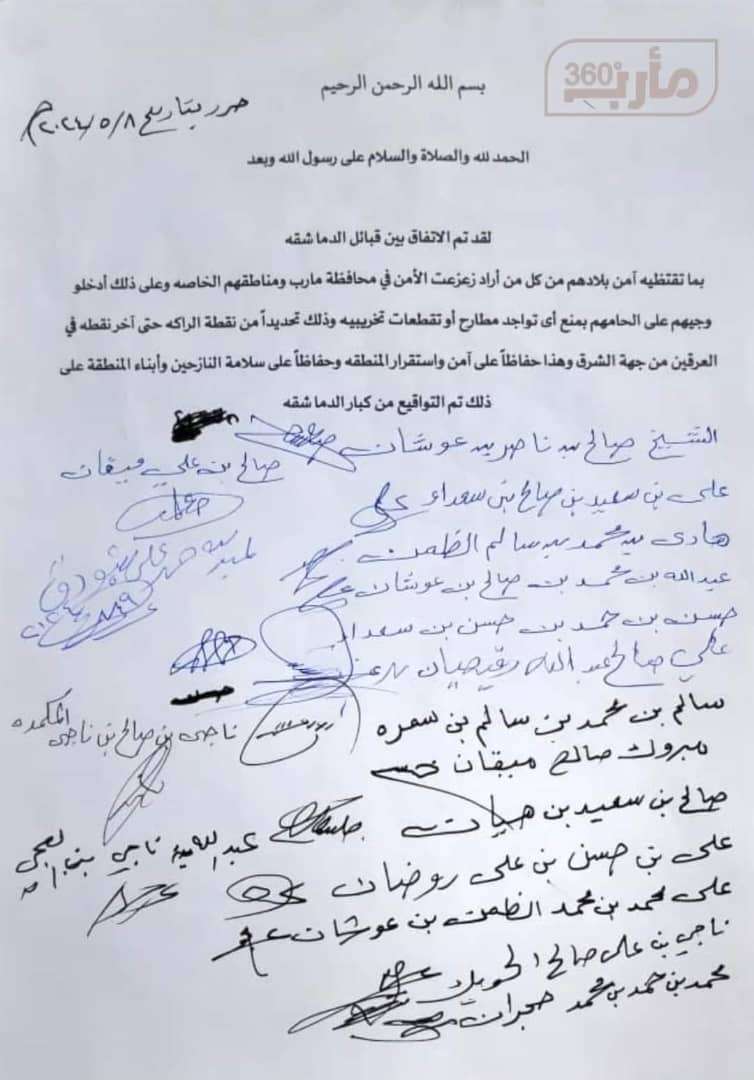 مأرب 360°
بسم الله الرحمن الرحيم
حرر بتاريخ ٢٠٢٤/٥/٨م
الحمد لله والصلاة والسلام على رسول الله وبعد
لقد تم الاتفاق بين قبائل الدماشقه
بما تقتظيه آمن بلادهم من كل من أراد زعزعت الأمن في محافظة مارب ومناطقهم الخاصه وعلى ذلك أدخلو
وجيهم على الحامهم بمنع أى تواجد مطارح أو تقطعات تخريبيه وذلك تحديداً من نقطة الراكه حتى آخر نقطه في
العرقين من جهة الشرق وهذا حفاظاً على آمن واستقرار المنطقه وحفاظاً على سلامة النازحين وأبناء المنطقة على
ذلك تم التواقيع من كبار الدماشقه
الشيخ صالح بن ناصر بن عوشان
صالح بن علي مبقان
على بن سعيد بن صالح بن سعداء
هادى بن محمد بن سالم
عبدالله بن محمد بن صالح بن عوشان
حسن بن حمد بن حسن بن سعداء
علي صالح عبدالله رقيصان
سالم بن محمد بن سالم بن سمره
ناجى بن صالح بن ناجى
مبروك صالح مبقان
صالح بن سعيد بن هيات
ناجي بن
على بن حسن بن على روضان
على محمد بن محمد بن عوشان
ناجي بن على صالح
محمد بن حمد بن محمد